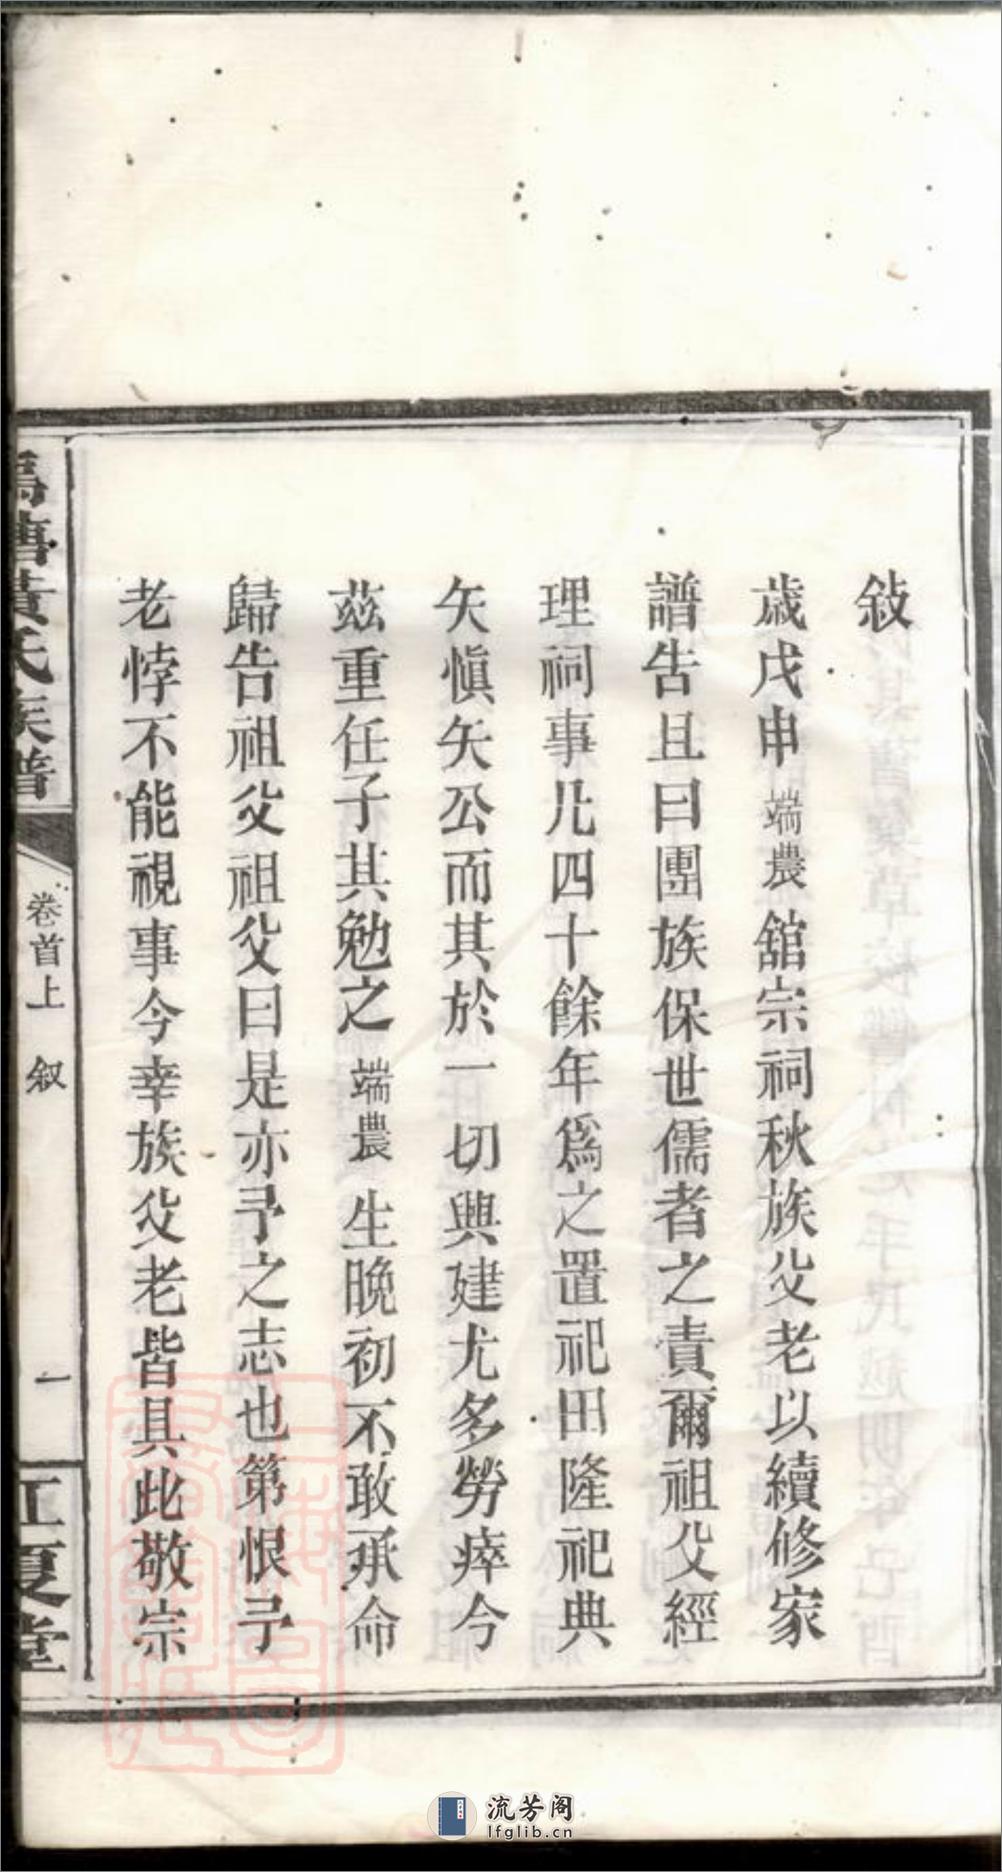 敍
歲戊申端農舘宗祠秋族父老以續修家
譜告且曰團族保世儒者之責爾祖父經
理祠事凡四十餘年爲之置祀田隆祀典
矢愼矢公而其於一切興建尤多勞瘁今
茲重任子其勉之端農生晚初不敢承命
歸告祖父祖父曰是亦予之志也第恨予
老悖不能視事今幸族父老皆具此敬宗
黃氏族譜
卷首上 叙
一
江夏堂
流芳阁
lfglib.cn